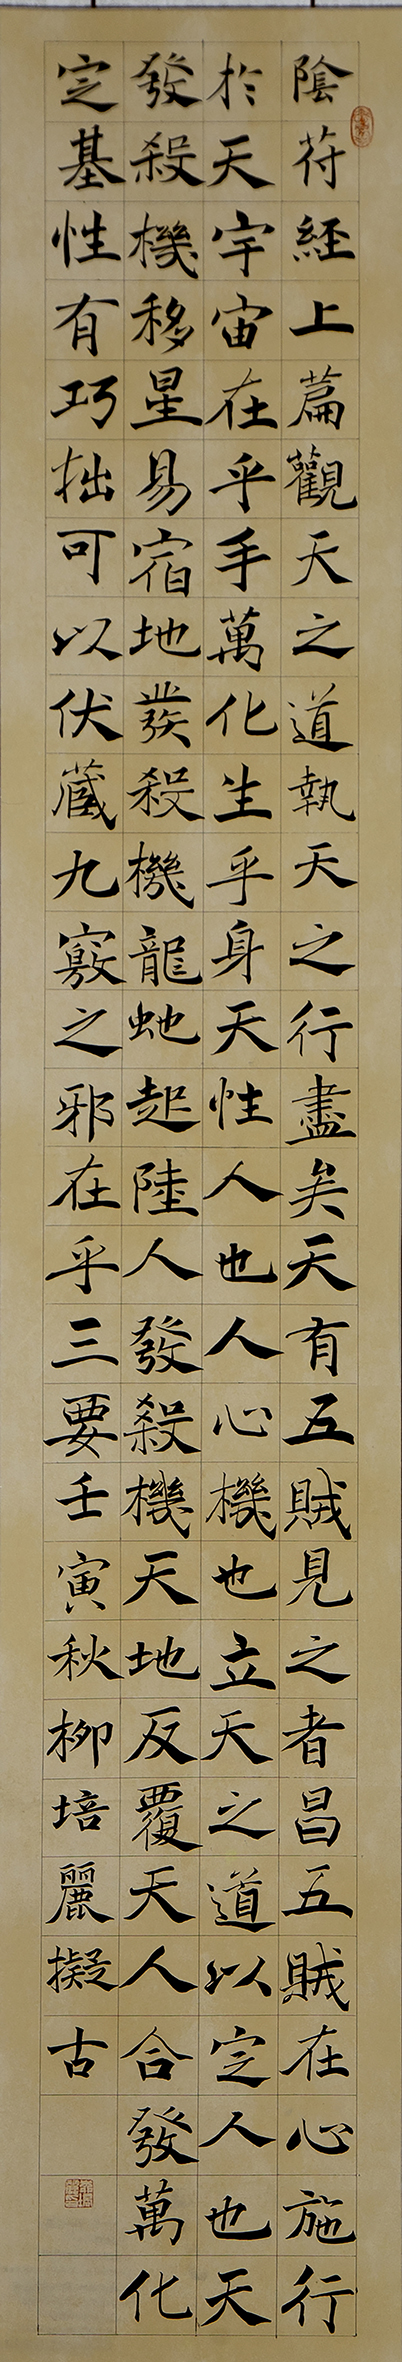 陰符經上篇觀天之道執天之行盡矣天有五賊見之者昌五賊在心施行
於天宇宙在乎手萬化生乎身天性人也人心機也立天之道以定人也天
發殺機移星易宿地發殺機龍虵起陸人發殺機天地反覆天人合發萬化
定基性有巧拙可以伏藏九竅之邪在乎三要壬寅秋柳培麗擬古